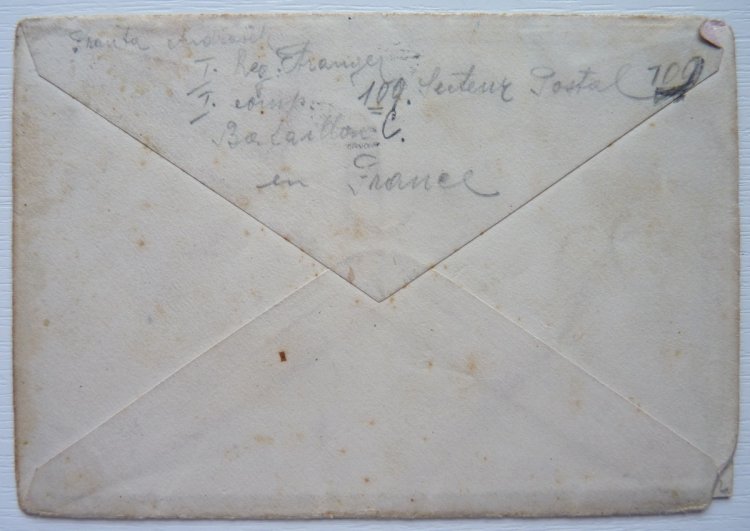 Franta
I. Reg. Étranger
I. comp. 109. Secteur Postal 109
Bataillon C.
en France